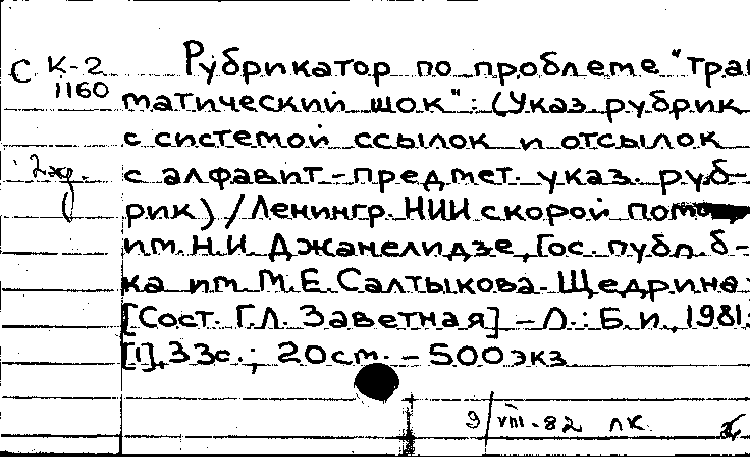 С К-2
1160
Рубрикатор по проблеме "трав
матический шок": (Указ. рубрик
с системой ссылок и отсылок
2жд. с алфавит-предмет. указ. руб-
рик) / Ленингр. НИИ скорой помощи
им. Н.И. Джанелидзе, Гос. публ. б-
ка им. М.Е. Салтыкова-Щедрина;
[Сост. Г.Л. Заветная] - Л.: Б.и., 1981.
[1], 33с.; 20см. - 500 экз
9/VIII-82 ЛК